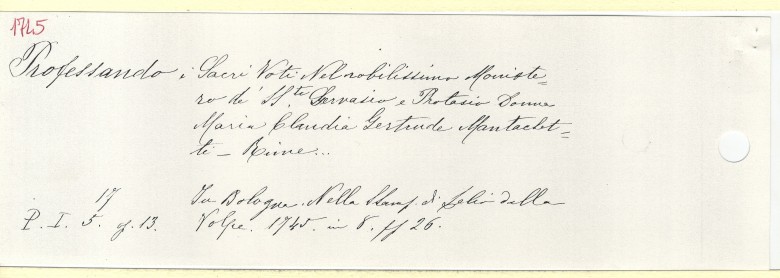 1745
Professando i Sacri Voti Nel nobilissimo Moniste=
ro de' SS.ti Gervasio e Protasio Donna
Maria Claudia Gertrude Mantachet=
ti - Rime...
17
In Bologna. Nella Stamp. di Lelio dalla
P. I. 5. op. 13. Volpe. 1745. in 8. ff 26.